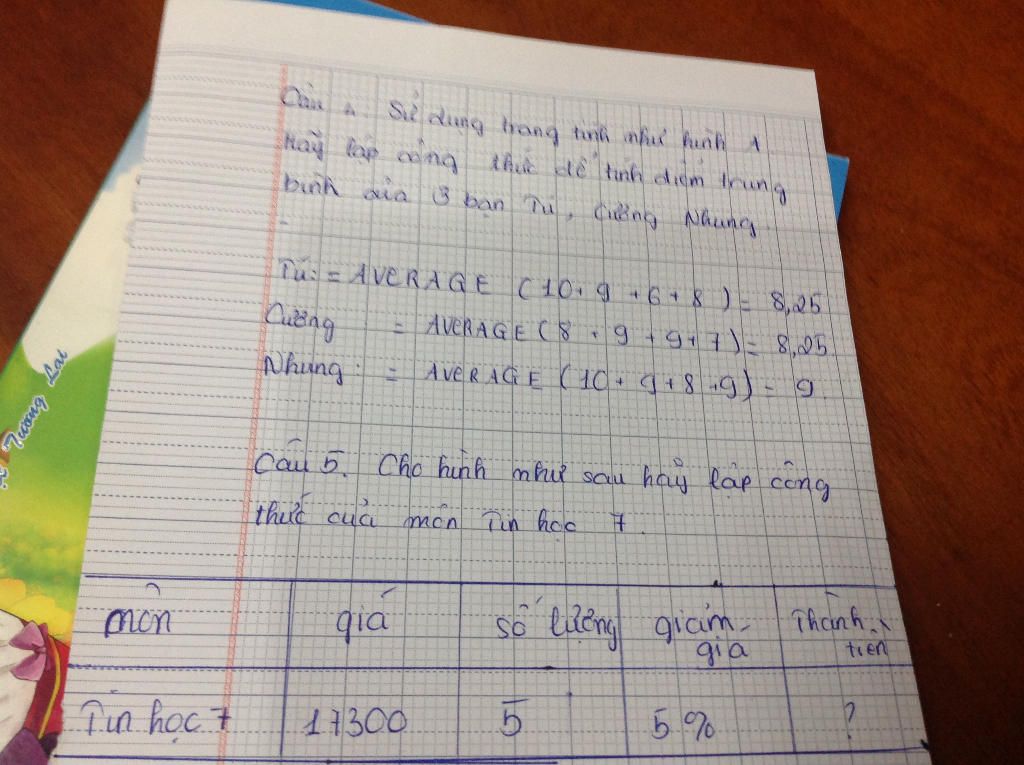 Câu 4. Sử dụng trang tính như hình 1
Hãy lập công thức để tính điểm trung
bình của 3 bạn Tú, Cường Nhung.
Tú: = AVERAGE (10+9+6+8) = 8,25
Cường = AVERAGE (8+9+9+7) = 8,25
Nhung: = AVERAGE (10+9+8+9) = 9.
Câu 5. Cho hình như sau hãy lập công
thức của môn Tin học 7.
môn giá số lượng giảm giá Thành tiền
Tin học 7 17300 5 5% ?
Tương Lai